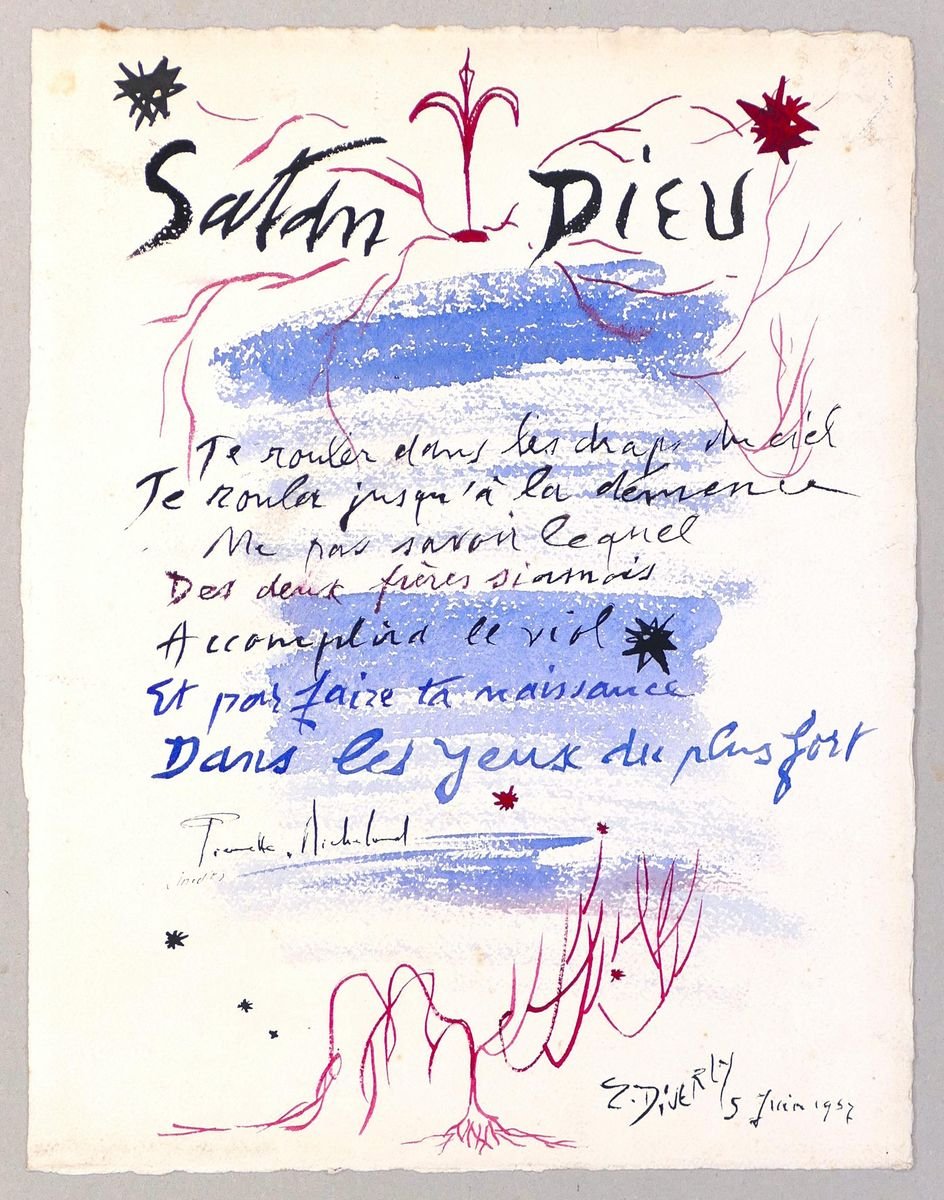 Satan Dieu
Te rouler dans les draps du ciel
Te rouler jusqu'à la démence
Ne pas savoir lequel
Des deux frères siamois
Accomplira le viol
Et pour faire ta naissance
Dans les yeux du plus fort
Pierrette Micheloud
(inédit)
5 Juin 1957